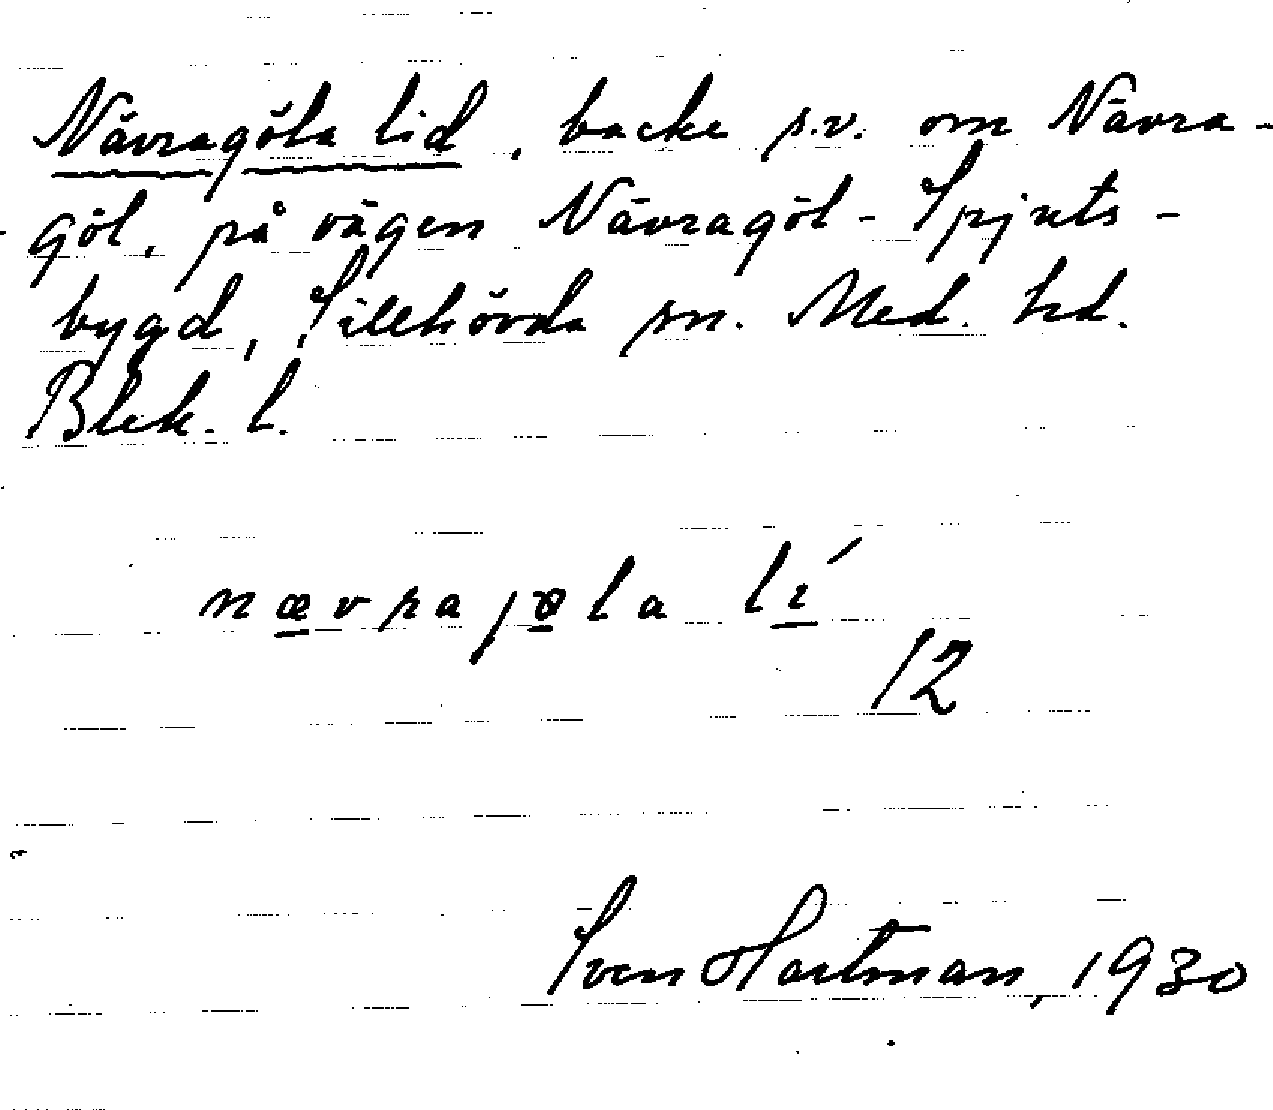 Nävragöla lid, backe s.v. om Nävra-
göl, på vägen Nävragöl - Spjuts-
bygd, Sillhövda sn. Med. hd.
Blek. l.
nævrajøla lí
12
Sven Hartman, 1930